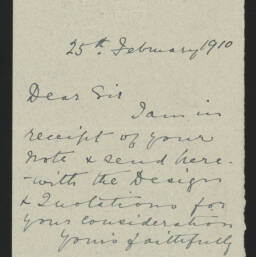 25th February 1910
Dear Sir
I am in
receipt of your
note & send here-
-with the Designs
& Quotations for
your consideration
Yours faithfully